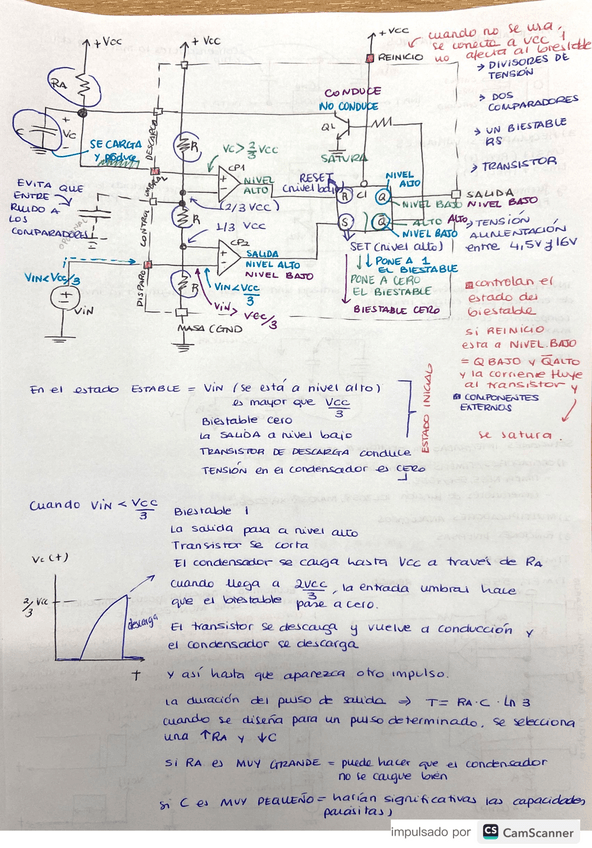 +Vcc
+Vcc
+Vcc
cuando no se usa,
se conecta a Vcc y
no afecta al biestable
REINICIO
RA
C
Vc
SE CARGA
DESCARGA
UMBRAL
CONTROL
DISPARO
R
R
R
Vc > 2/3 Vcc
CP1
NIVEL
ALTO
(2/3 Vcc)
1/3 Vcc
CP2
SALIDA
NIVEL ALTO
NIVEL BAJO
Vin < Vcc/3
Vin > Vcc/3
CONDUCE
NO CONDUCE
SATURA
RESET
(nivel bajo)
R
S
Q
Q̅
NIVEL
ALTO
NIVEL BAJO
ALTO
ALTO
NIVEL BAJO
SALIDA
NIVEL BAJO
SET (nivel alto)
PONE A 1
EL BIESTABLE
PONE A CERO
EL BIESTABLE
BIESTABLE CERO
→ DIVISORES DE
TENSIÓN
→ DOS
COMPARADORES
→ UN BIESTABLE
RS
→ TRANSISTOR
→ TENSIÓN
ALIMENTACIÓN
entre 4,5V y 16V
EVITA QUE
ENTRE
RUIDO A
LOS
COMPARADORES
OPCIONAL
Vin < Vcc/3
Vin
MASA (GND)
controlan el
estado del
biestable
si REINICIO
esta a NIVEL BAJO
= Q BAJO y Q̅ ALTO
y la corriente fluye
al transistor y
COMPONENTES
EXTERNOS
se satura.
En el estado ESTABLE = Vin (se está a nivel alto)
es mayor que Vcc/3
Biestable cero
La SALIDA a nivel bajo
TRANSISTOR DE DESCARGA conduce
TENSIÓN en el condensador es CERO
ESTADO INICIAL
Cuando Vin < Vcc/3
Biestable 1
La salida pasa a nivel alto
Transistor se corta
El condensador se carga hasta Vcc a través de RA
cuando llega a 2Vcc/3, la entrada umbral hace
que el biestable pase a cero.
El transistor se descarga y vuelve a conducción y
el condensador se descarga
Vc (t)
2/3 Vcc
descarga
T
Y así hasta que aparezca otro impulso.
La duración del pulso de salida ⇒ T = RA · C · Ln 3
cuando se diseña para un pulso determinado, se selecciona
una ↑RA y ↓C
Si RA es MUY GRANDE = puede hacer que el condensador
no se cargue bien
Si C es MUY PEQUEÑO = harían significativas las capacidades
parásitas)
impulsado por CS CamScanner